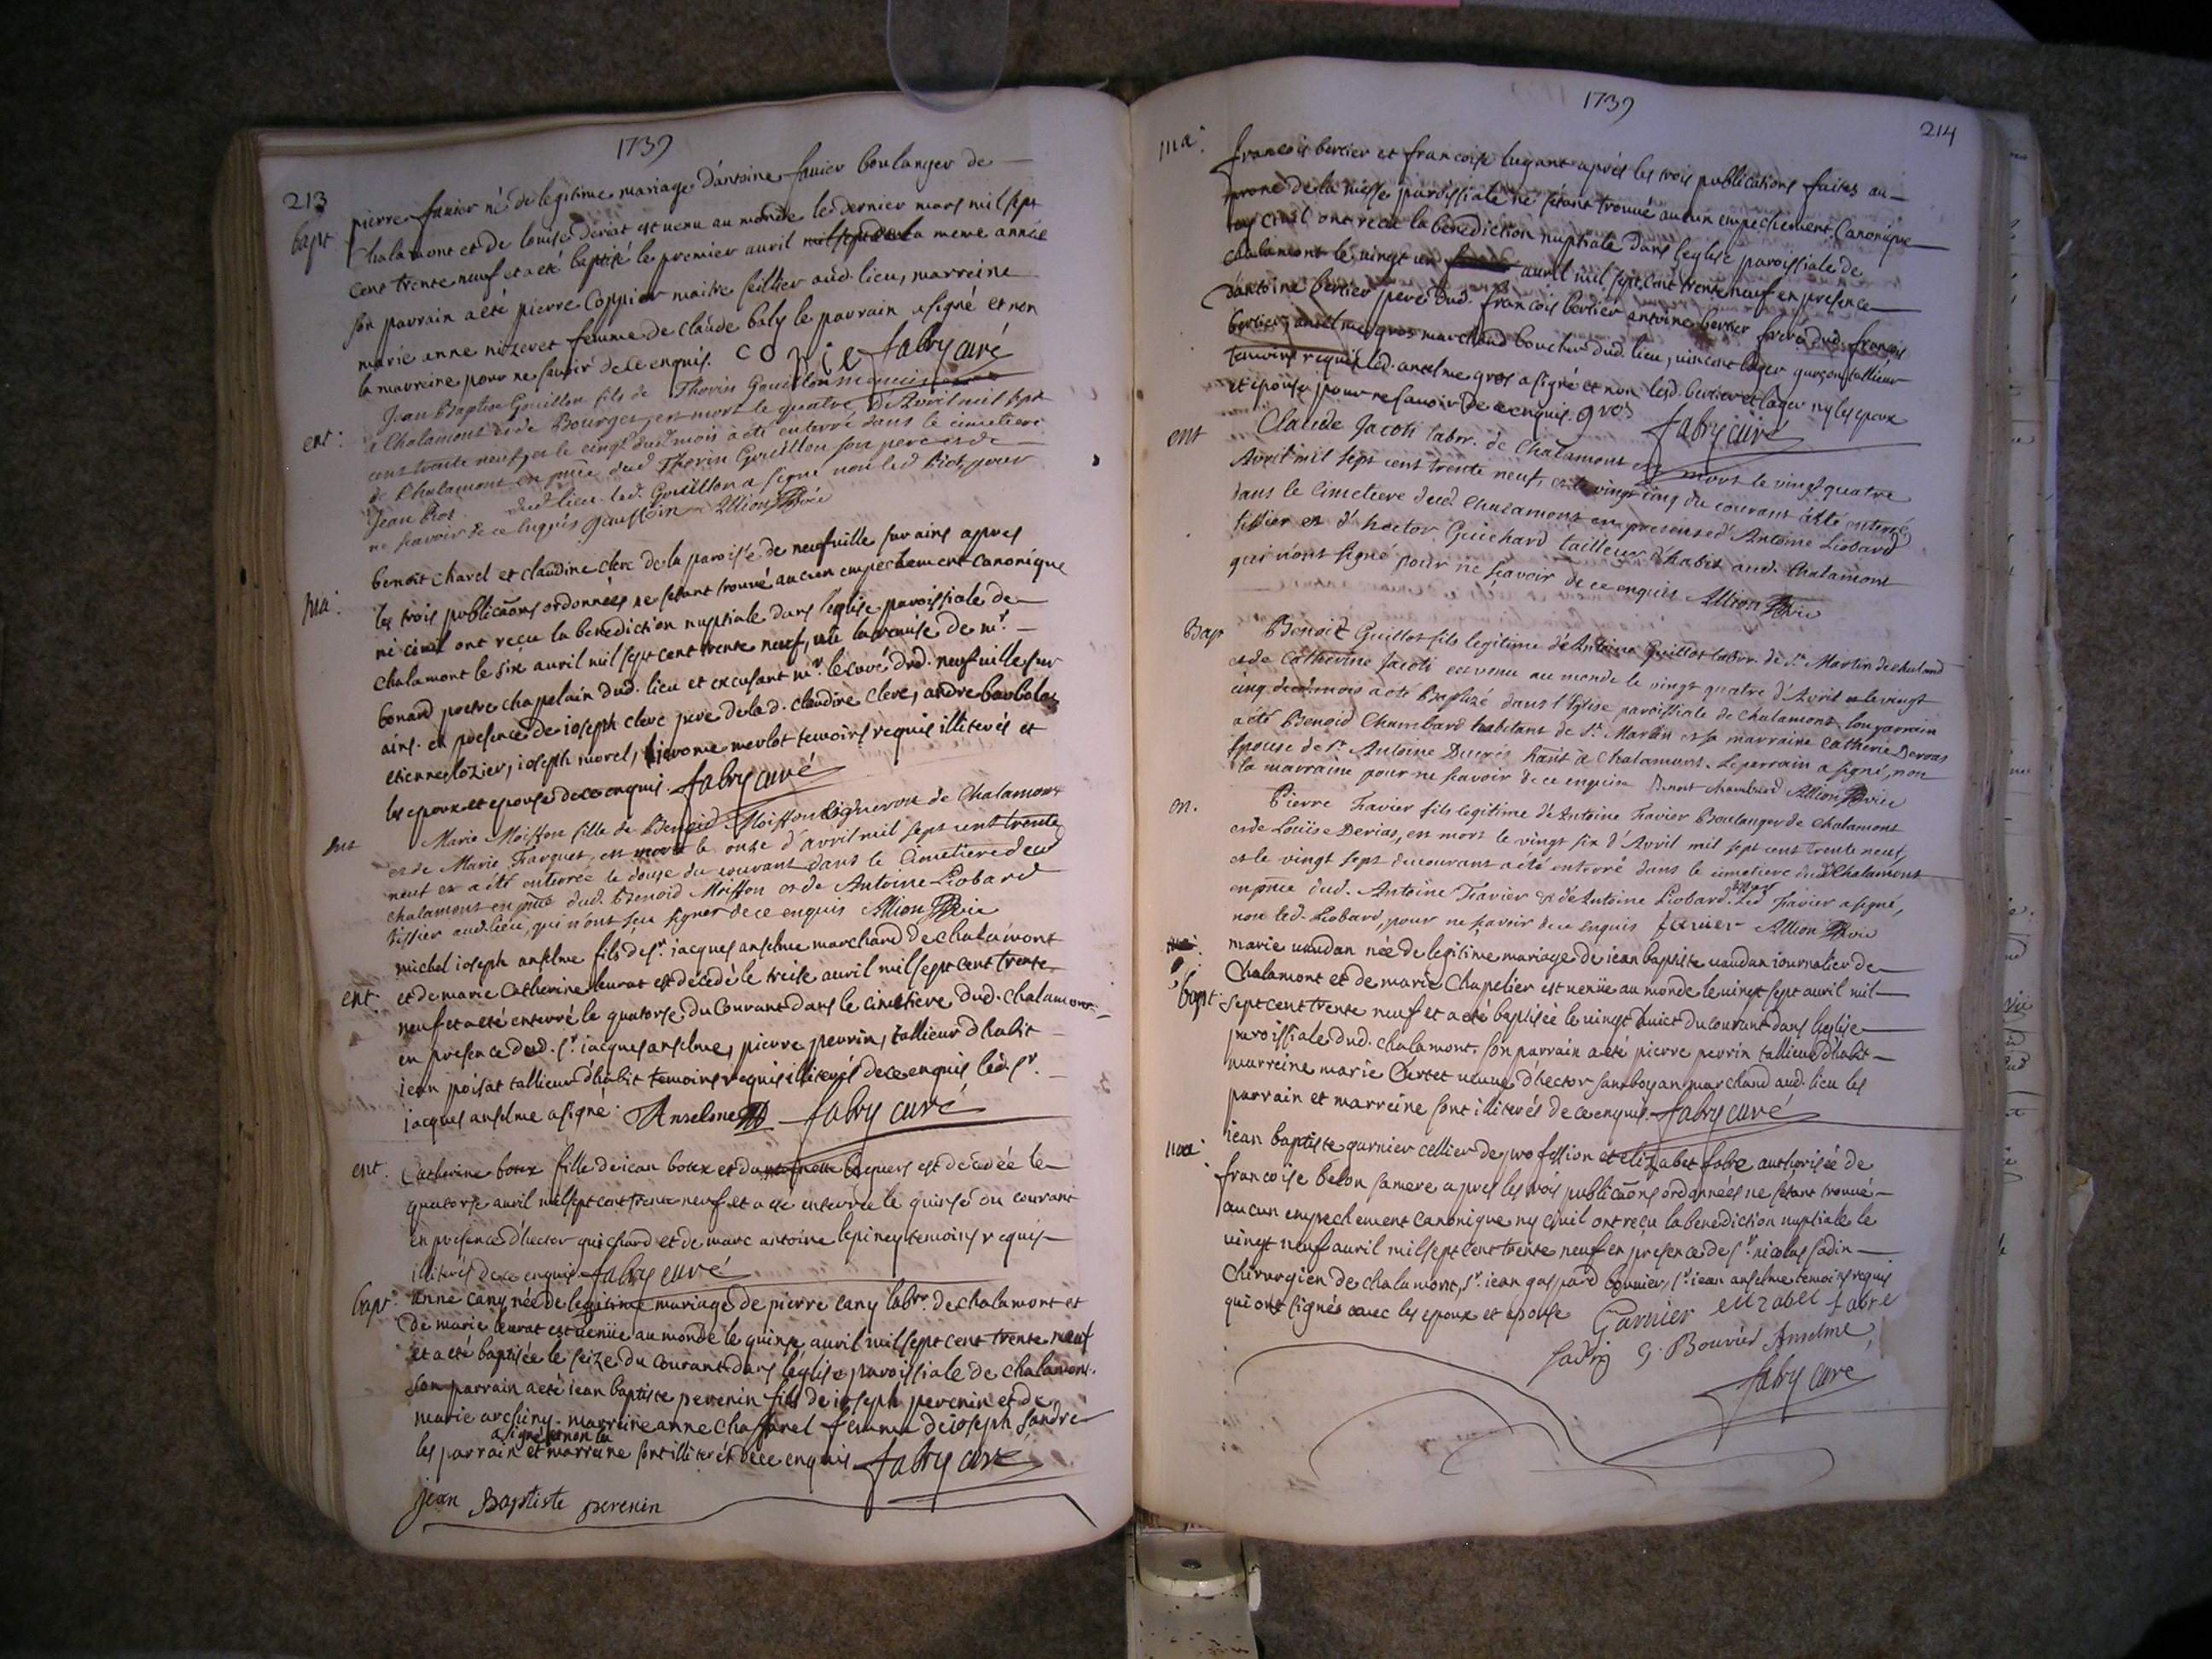 1739
213
bapt
pierre favier né de legitime mariage d'antoine favier boulanger de
Chalamont et de louise deriat est venu au monde le dernier mars mil sept
cent trente neuf et a eté baptisé le premier avril la meme année
son parrain a eté pierre Coppier maitre sellier aud. lieu, marreine
marie anne nizeret femme de claude baly le parrain a signé et non
la marreine pour ne savoir de ce enquis. fabry curé
ent:
Jean Baptiste Gouillon fils de Thorin Gouillon
a Chalamont et de Bourges, est mort le quatre d'Avril mil sept
cent trente neuf, et le cinq dud mois a été enterré dans le cimetiere
de Chalamont en pnce dud Thorin Gouillon son pere et de
Jean Piot dud lieu led. Gouillon a signé non led Piot, pour
ne scavoir de ce enquis Allion Vic
ma:
benoit charel et claudine clerc de la paroisse de neufville sur ains apres
les trois publicaõns ordonnées ne setant trouvé aucun empechement canonique
ni civil ont recu la benediction nuptiale dans leglise paroissiale de
chalamont le six avril mil sept cent trente neuf, vüe la remise de mr.
bonard pretre chapelain dud. lieu et excusant mr. le curé dud. neufville sur
ains. en presence de ioseph clerc pere de la d. claudine clerc, andre barbolat
etienne lozier, ioseph morel, jerome merlot temoins requis illiterés et
les epoux et epouse de ce enquis. fabry curé
ent
Marie Moisson fille de Benoid Moisson vigneron de Chalamont
et de Marie Farguet, est morte le onze d'avril mil sept cent trente
neuf et a été enterrée le douze du courant dans le Cimetiere dud
chalamont en pnce dud. Benoid Moisson et de Antoine Liobard
tissier aud. lieu, qui n'ont sçu signer de ce enquis Allion Vic
ent
michel ioseph anselme fils de sr. iacques anselme marchand de chalamont
et de marie Catherine leurat est décédé le treise avril mil sept cent trente
neuf et a eté enterré le quatorse du Courant dans le cimetiere dud. chalamont
en presence dud. sr. iacques anselme, pierre pevrin, tallieur dhabit
iean poisat tallieur dhabit temoins requis illiterés de ce enquis led. sr.
iacques anselme a signé. Anselme fabry curé
ent.
Catherine boux fille de iean boux et de est décedée le
quatorse avril mil sept cent trente neuf et a eté enterrée le quinse du courant
en presence d'hector guichard et de marc antoine lepiney temoins requis
illiterés de ce enquis fabry curé
bapt.
anne cany née de legitime mariage de pierre cany labr. de chalamont et
de marie leurat est venüe au monde le quinse avril mil sept cent trente neuf
et a eté baptisée le seize du Courant dans léglise paroissiale de chalamont.
son parrain a eté iean baptiste perenin fils de ioseph perenin et de
marie archeny. marreine anne chaffarel femme de ioseph landre
a signé et non la
les parrain et marreine sont illiterés de ce enquis fabry curé
jean Baptiste perenin
1739
214
ma:
francois berlier et francoise lugant aprés les trois publications faites au
prone de la messe paroissiale ne sétant trouvé aucun empechement Canonique
ny civil ont recu la benediction nuptiale dans leglise paroissiale de
chalamont le vingt un avril mil sept cent trente neuf en presence
d'antoine berlier pere dud. francois berlier antoine berlier frere dud. francois
berlier, anselme gros marchand boucher dud. lieu, vincent lager garçon tallieur
temoins requis led. anselme gros a signé et non lesd. berlier et lager ny les epoux
et epouse pour ne savoir de ce enquis. gros fabry curé
ent
Claude Jacoti labr. de Chalamont est mort le vingt quatre
Avril mil sept cent trente neuf, et le vingt cinq du courant a été enterré
dans le Cimetiere dud. Chalamont en presence d'Antoine Liobard
tissier et d'hector Guichard tailleur d'habit aud. Chalamont
qui n'ont signé pour ne sçavoir de ce enquis Allion Vic
Bap
Benoit Guillot fils legitime d'Antoine Guillot labr. de St. Martin de chalamd
et de Catherine Jacoti est venu au monde le vingt quatre d'Avril et le vingt
cinq dud. mois a été Baptizé dans l'Eglise paroissiale de Chalamont, son parrain
a été Benoid Chambard habitant de St. Martin et sa marraine Catherine Dervas
Epouse de Sr. Antoine Ducrés hant à Chalamont. Le parrain a signé, non
la marraine pour ne scavoir de ce enquise Benoit Chambard Allion Vic
en.
Pierre Favier fils legitime d'Antoine Favier Boulanger de Chalamont
et de Louïse Derias, est mort le vingt six d'Avril mil sept cent trente neuf,
et le vingt sept du courant a été enterré dans le cimetiere dud Chalamont
en pnce dud. Antoine Favier et de Antoine Liobard tissier Led Favier a signé,
non led. Liobard, pour ne scavoir de ce enquis favier Allion Vic
bapt.
marie vaudan née de legitime mariage de iean baptiste vaudan iournalier de
Chalamont et de marie Chapelier est venüe au monde le vingt sept avril mil
sept cent trente neuf et a eté baptisée le vingt huict du courant dans leglise
paroissiale dud. chalamont. son parrain a eté pierre pevrin tallieur d'habit
marreine marie Curtet veuve d'hector sanboyan marchand aud. lieu les
parrain et marreine sont illiterés de ce enquis. fabry curé
ma:
iean baptiste garnier cellier de profession et elizabet fabre authorisée de
francoise belon sa mere apres les trois publicaõns ordonnées ne setant trouvé
aucun empechement canonique ny civil ont recu la benediction nuptiale le
vingt neuf avril mil sept cent trente neuf en presence de sr. nicolas sadin
Chirurgien de chalamont, sr. iean gaspard bouvier, sr. iean anselme temoins requis
qui ont signés avec les epoux et épouse Garnier elizabet fabre
Sadin G. Bouvier Anselme
fabry curé